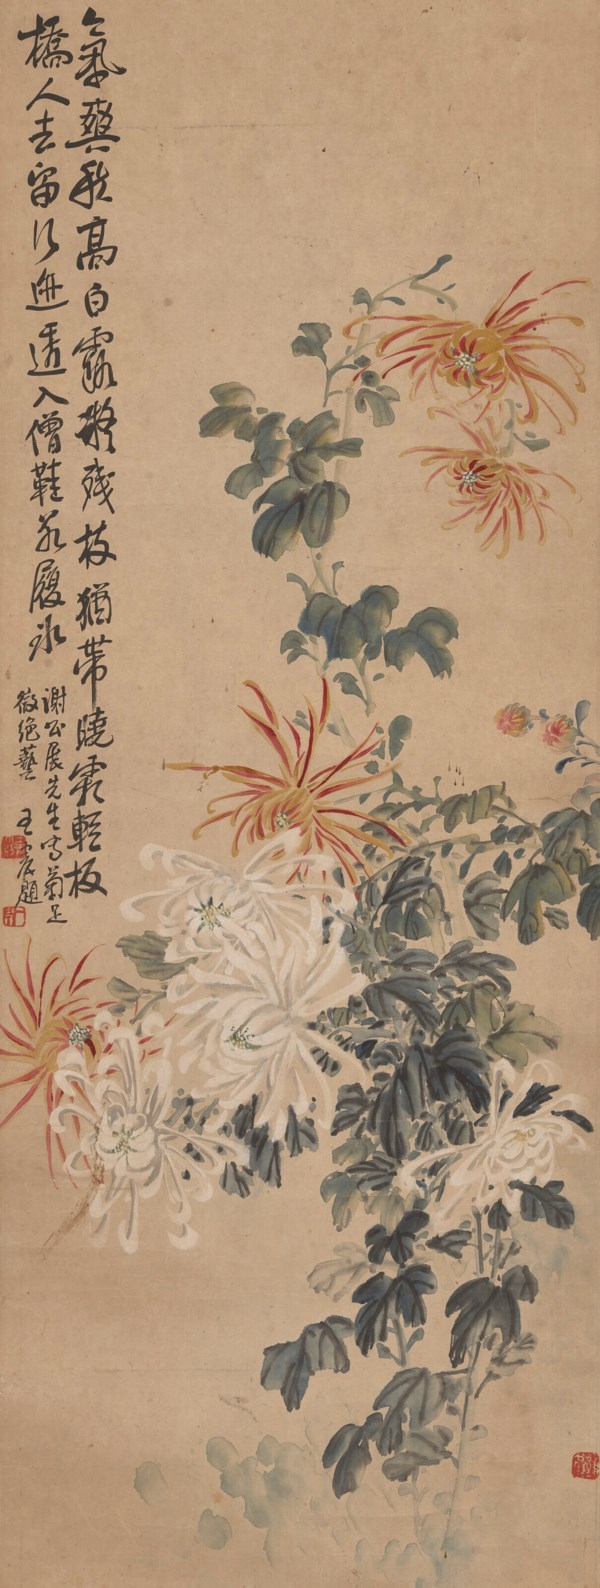 氣爽秋高白露凝殘枝猶帶曉霜輕板
橋人去留行迹透入僧鞋若履冰
謝公展先生寫菊足
徵絕藝 王震題